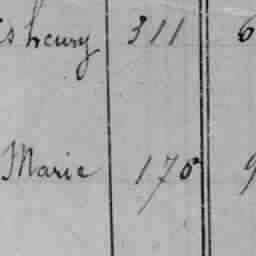 henry 311 6
Marie 170 9